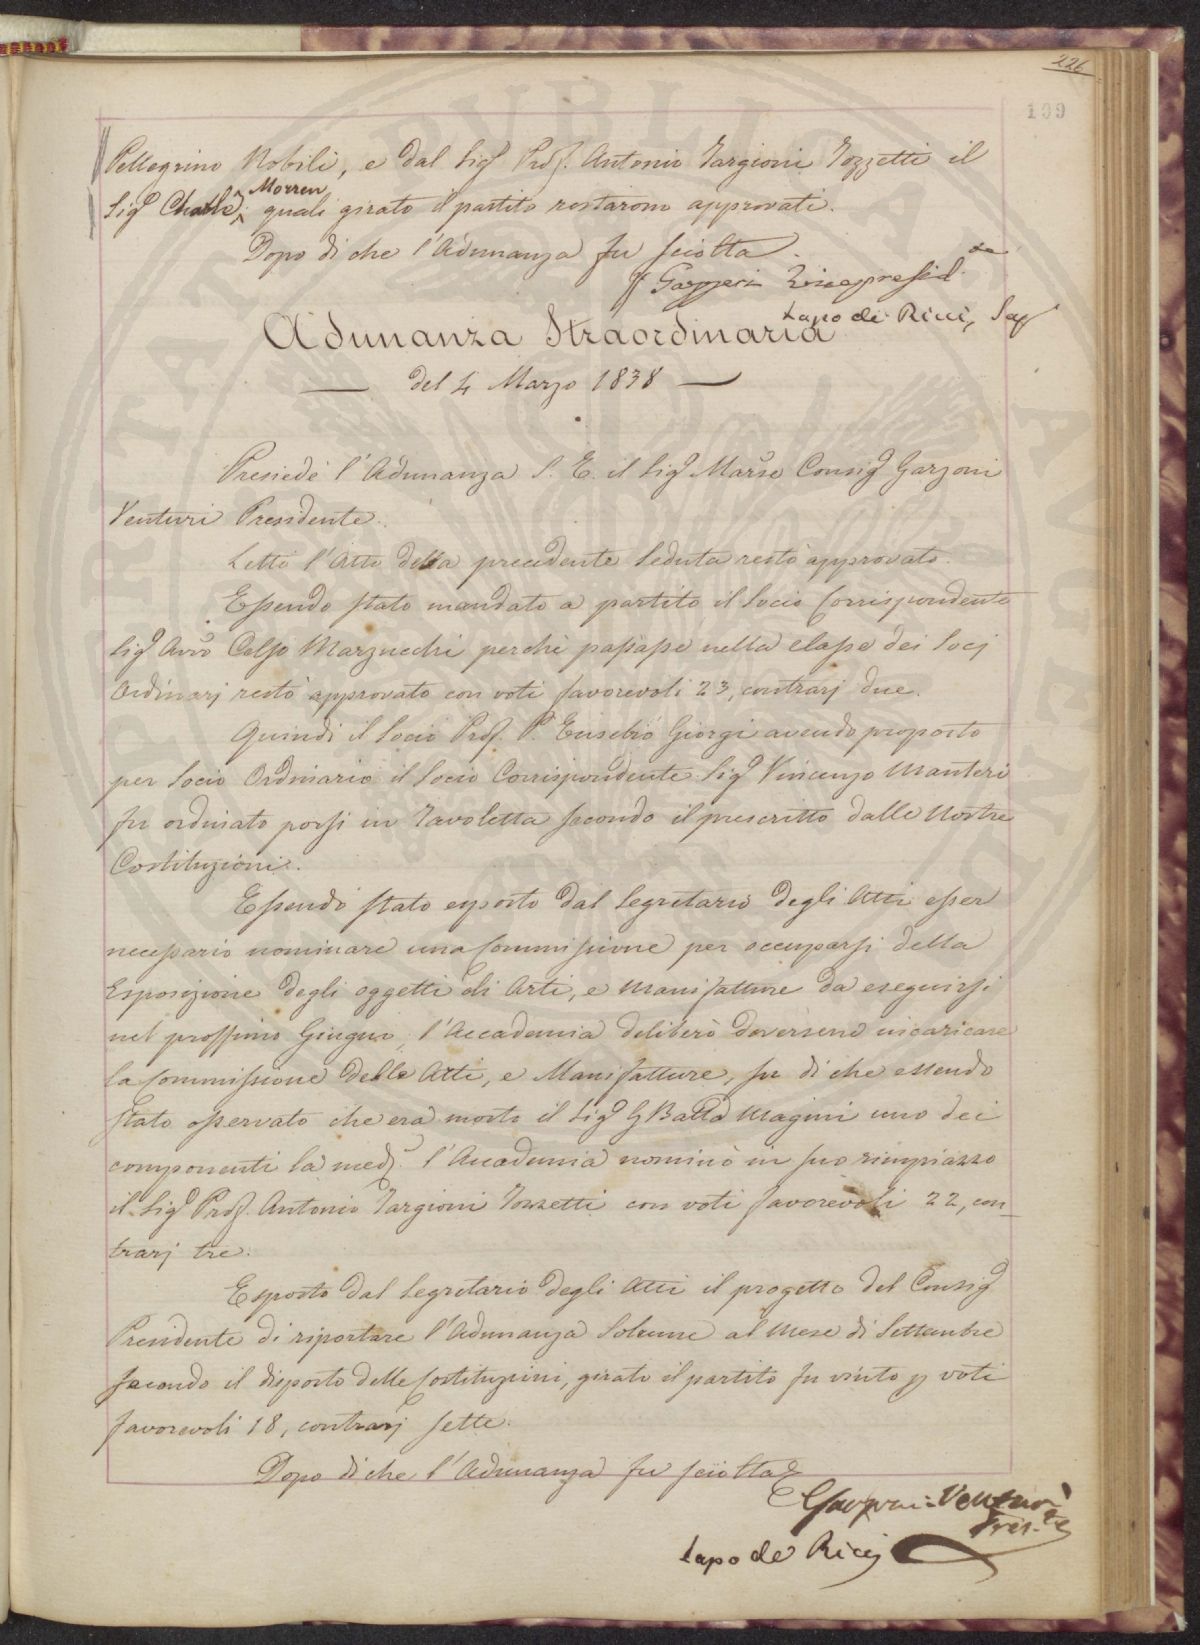 226
109
Pellegrino Nobili, e dal Sigr Prof. Antonio Targioni Tozzetti il
Sigr Charle Morren quali girato il partito restarono approvati.
Dopo di che l'Adunanza fu sciolta.
G Gazzeri Vicepresid.te
Lapo de Ricci, Seg
Adunanza Straordinaria
del 4 Marzo 1838
Presiedè l'Adunanza S. E. il Sigr Marse Consigr Garzoni
Venturi Presidente.
Letto l'Atto della precedente Seduta restò approvato.
Essendo stato mandato a partito il Socio Corrispondente
Sigr Avvo Celso Marzucchi perchè passasse nella classe dei Socj
Ordinarj restò approvato con voti favorevoli 23, contrarj due.
Quindi il Socio Prof. P. Eusebio Giorgi avendo proposto
per Socio Ordinario il Socio Corrispondente Sigr Vincenzo Manteri
fu ordinato porsi in Tavoletta secondo il prescritto dalle Nostre
Costituzioni.
Essendo stato esposto dal Segretario degli Atti esser
necessario nominare una Commissione per occuparsi della
Esposizione degli oggetti di Arti, e Manifatture da eseguirsi
nel prossimo Giugno, l'Accademia deliberò doversene incaricare
la Commissione delle Arti, e Manifatture, su di che essendo
stato osservato che era morto il Sigr G Batta Magini uno dei
componenti la meda l'Accademia nominò in suo rimpiazzo
il Sigr Prof. Antonio Targioni Tozzetti con voti favorevoli 22, con-
trarj tre.
Esposto dal Segretario degli Atti il progetto del Consigr
Presidente di riportare l'Adunanza Solenne al Mese di Settembre
secondo il disposto delle Costituzioni, girato il partito fu vinto p voti
favorevoli 18, contrarj sette.
Dopo di che l'Adunanza fu sciolta
Garzoni Venturi
Pres.te
Lapo de Ricci